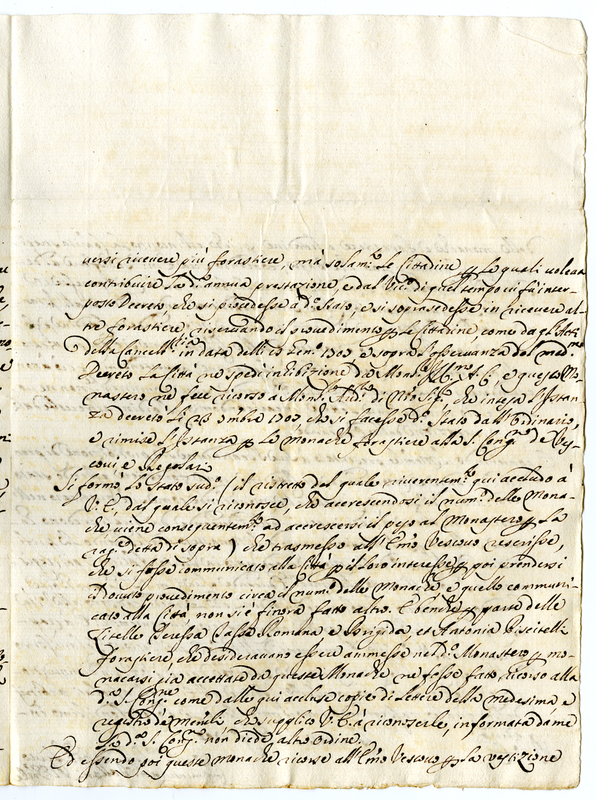 versi ricevere più forastiere, mà solam.te le Cittadine p le quali voleva
contribuire la d.a annua prestazione, e dal Vic.o di quel tempo vi fù inter-
posto Decreto, che si procedesse a d.o stato, e si soprasedesse in ricevere al-
tre forastiere, riservando il provedimento p le Cittadine, come dagl'Atti
della Cancell.ria in data delli Gen.o 1703, e sopra l'osservanza del med.mo
Decreto la Città ne spedì inibizione di Mons. A. C., e questo Mo-
nastero ne fece ricorso à Mons. Aud.re di N.ro Sig.re che intesa l'Istan-
za decretò le 23 9mbre 1703, che si facesse d.o Stato dall'Ordinario,
e rimise l'Istanza p le Monache forastiere alla S. Cong.ne de Ves-
covi, e Regolari
Si formò lo stato sud.o (il ristretto del quale riverentem.te qui accludo à
V. E., dal quale si riconosce, che accrescendosi il num.o delle Mona-
che viene conseguentem.te ad accrescersi il peso al Monastero p la
rag.e detta di sopra) che trasmesso all'Em.o Vescovo rescrisse,
che si fosse communicato alla Città p il loro interesse p poi prendersi
il dovuto provedimento circa il num.o delle Monache, e quello communi-
cato alla Città non si è finora fatto altro. E benche p parte delle
Zitelle Teresa Cassa Romana, e Brigida, et Antonia Piscitelli
forastiere, che desideravano essere ammesse nel d.o Monastero p mo-
nacarsi già accettate da queste Monache ne fosse fatto ricorso alla
d.a S. Cong.ne come dalle qui accluse copie di lettere della medesima, e
registro de memli, che supplico V. E. à riconoscerle, informata da me
la d.a S. Cong.ne non diede altro Ordine.
Ed essendo poi queste monache ricorse all'Em.o Vescovo p la vestizione